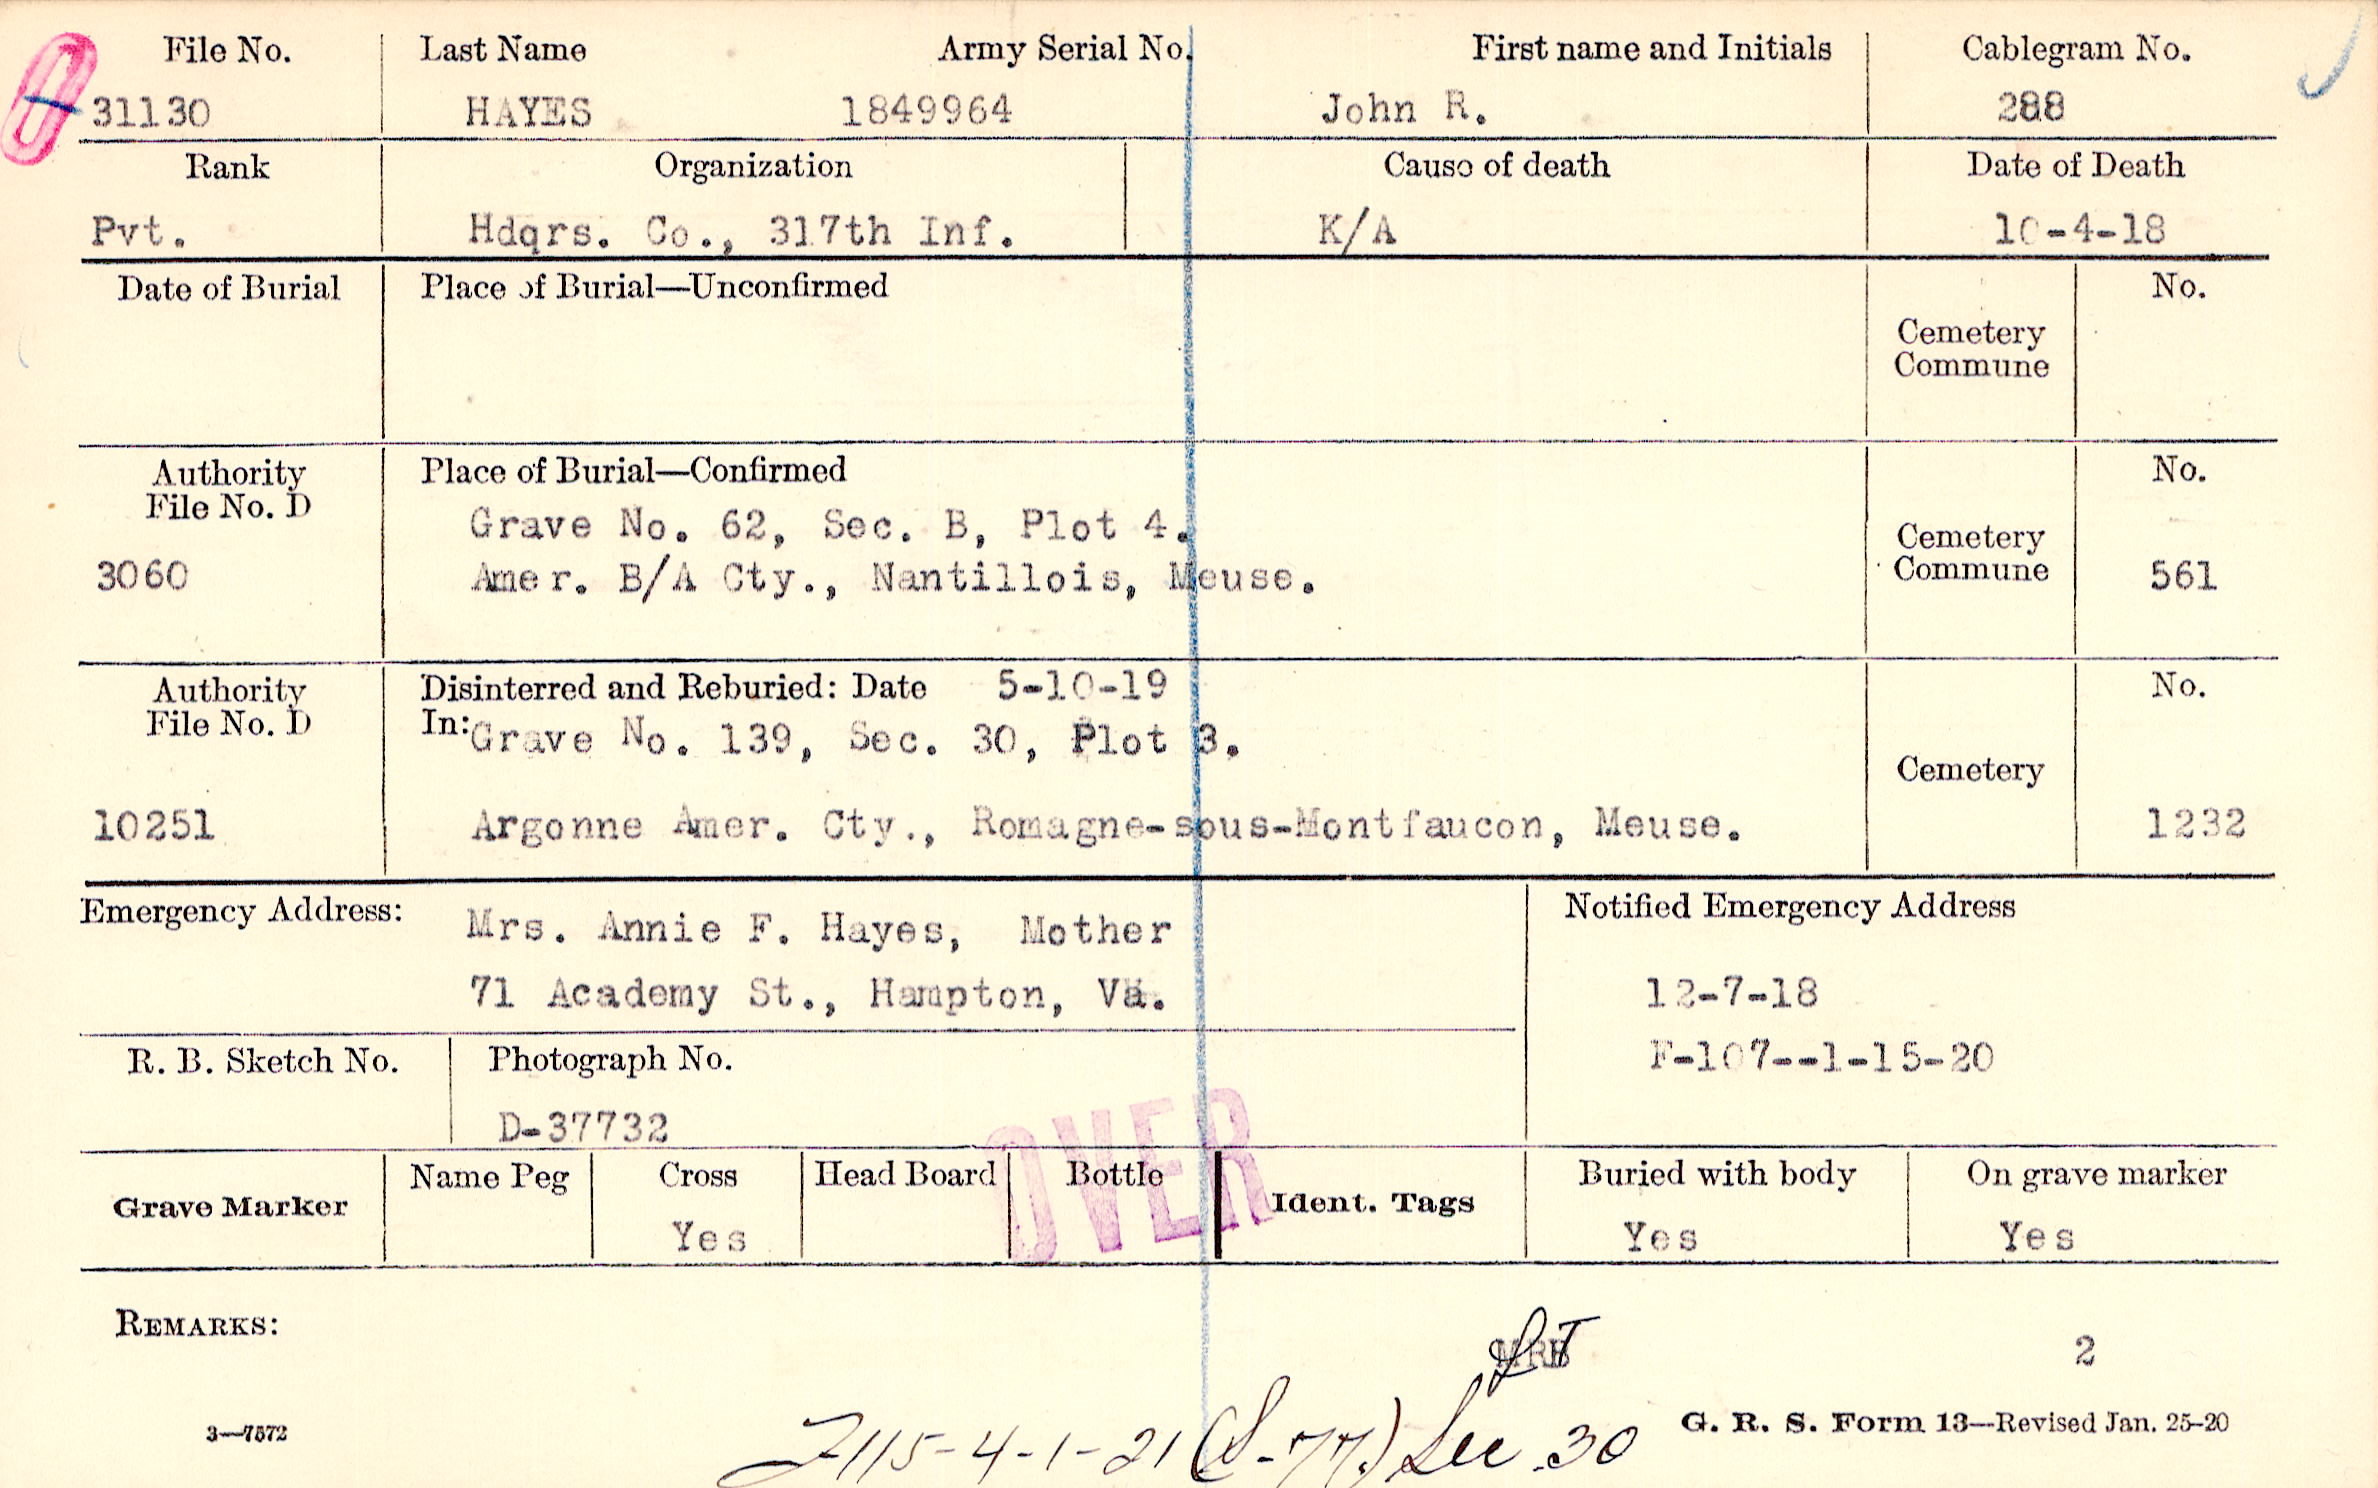 File No. Last Name Army Serial No. First name and Initials Cablegram No.
31130 HAYES 1849964 John R. 288
Rank Organization Cause of death Date of Death
Pvt. Hdqrs. Co., 317th Inf. K/A 10-4-18
Date of Burial Place of Burial—Unconfirmed No.
Cemetery
Commune
Authority Place of Burial—Confirmed No.
File No. D
Grave No. 62, Sec. B, Plot 4.
Cemetery
Commune
3060 Amer. B/A Cty., Nantillois, Meuse. 561
Authority Disinterred and Reburied: Date 5-10-19 No.
File No. D In: Grave No. 139, Sec. 30, Plot 3.
Cemetery
10251 Argonne Amer. Cty., Romagne-sous-Montfaucon, Meuse. 1232
Emergency Address: Mrs. Annie F. Hayes, Mother Notified Emergency Address
71 Academy St., Hampton, Va. 12-7-18
R. B. Sketch No. Photograph No. F-107--1-15-20
D-37732
OVER
Name Peg Cross Head Board Bottle Buried with body On grave marker
Grave Marker Ident. Tags
Yes Yes Yes
REMARKS:
MRB 2
3—7572 G. R. S. Form 13—Revised Jan. 25-20
115-4-1-21 (S-77.) Sec 30